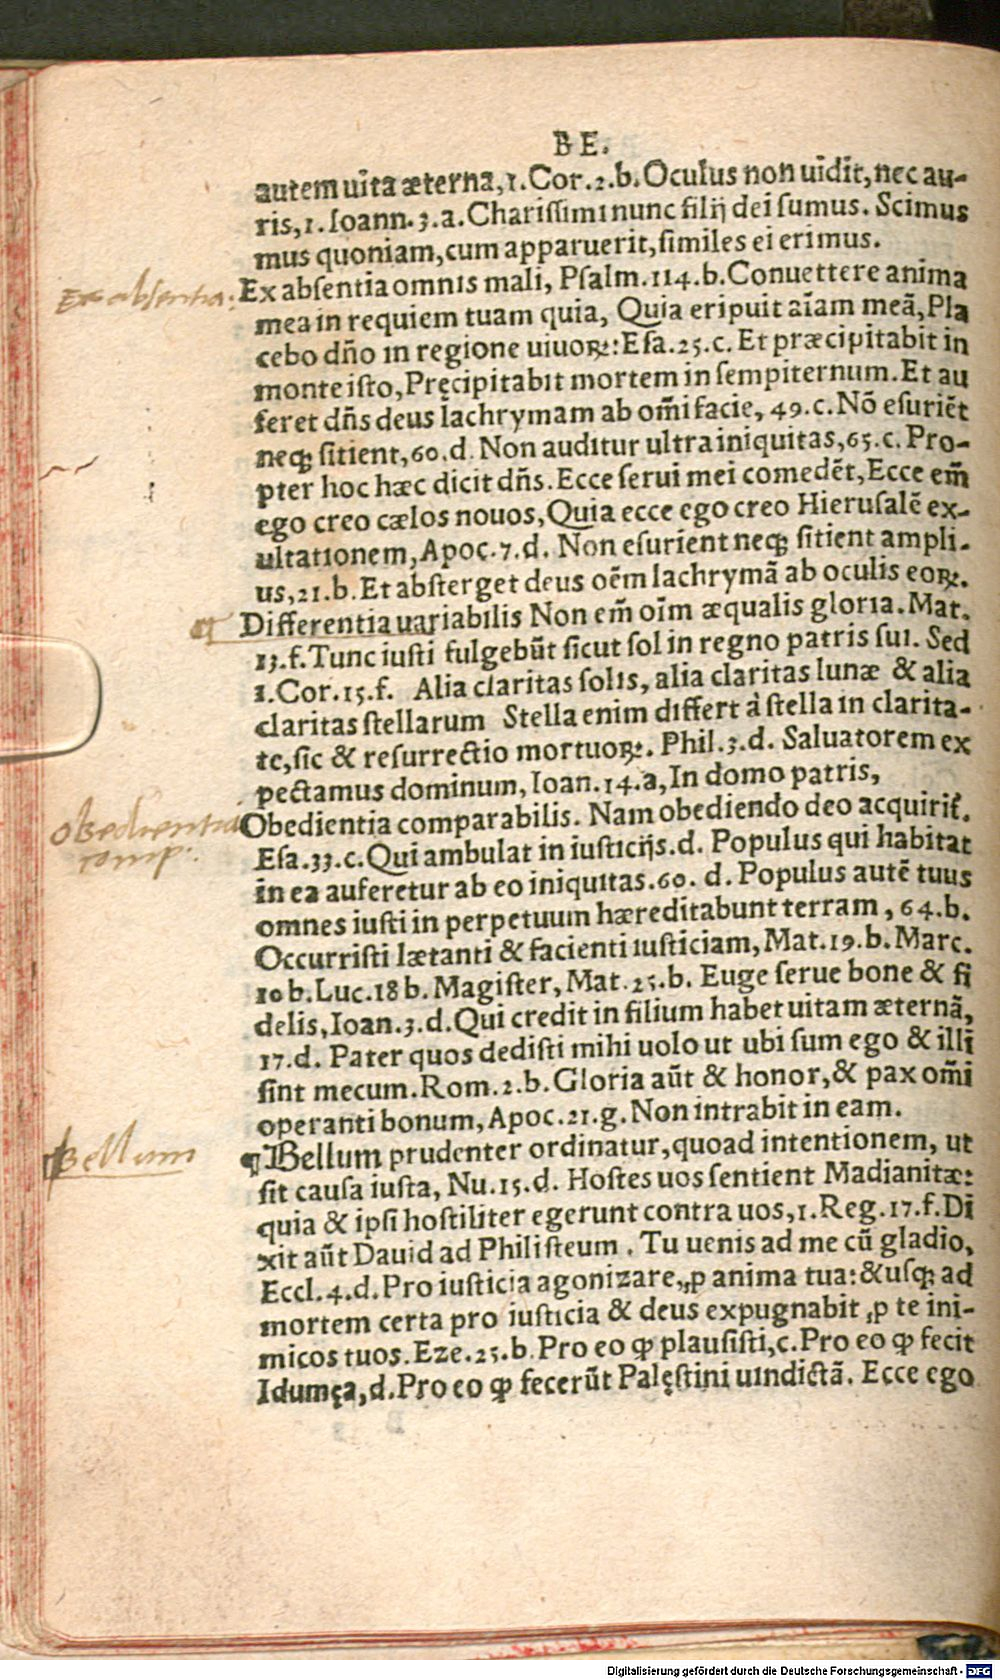 BE.
autem uita æterna, 1. Cor. 2. b. Oculus non uidit, nec au-
ris, 1. Ioann. 3. a. Charissimi nunc filij dei sumus. Scimus
mus quoniam, cum apparuerit, similes ei erimus.
Ex absentia:
Ex absentia omnis mali, Psalm. 114. b. Conuettere anima
mea in requiem tuam quia, Quia eripuit aīam meā, Pla
cebo dño in regione uiuoꝝ: Esa. 25. c. Et præcipitabit in
monte isto, Pręcipitabit mortem in sempiternum. Et au
feret dñs deus lachrymam ab om̄i facie, 49. c. Nō esuriēt
neqꝫ sitient, 60. d. Non auditur ultra iniquitas, 65. c. Pro-
pter hoc hæc dicit dñs. Ecce serui mei comedēt, Ecce em̄
ego creo cælos nouos, Quia ecce ego creo Hierusalē ex-
ultationem, Apoc. 7. d. Non esurient neqꝫ sitient ampli-
us, 21. b. Et absterget deus oēm lachrymā ab oculis eoꝝ.
¶ Differentia uariabilis Non em̄ oīm æqualis gloria. Mat.
13. f. Tunc iusti fulgebūt sicut sol in regno patris sui. Sed
1. Cor. 15. f. Alia claritas solis, alia claritas lunæ & alia
claritas stellarum Stella enim differt à stella in clarita-
te, sic & resurrectio mortuoꝝ. Phil. 3. d. Saluatorem ex
pectamus dominum, Ioan. 14. a, In domo patris,
Obedientia
comp:.
Obedientia comparabilis. Nam obediendo deo acquirit̄.
Esa. 33. c. Qui ambulat in iusticijs. d. Populus qui habitat
in ea auferetur ab eo iniquitas. 60. d. Populus autē tuus
omnes iusti in perpetuum hæreditabunt terram, 64. b.
Occurristi lætanti & facienti iusticiam, Mat. 19. b. Marc.
10 b. Luc. 18 b. Magister, Mat. 25. b. Euge serue bone & fi
delis, Ioan. 3. d. Qui credit in filium habet uitam æternā,
17. d. Pater quos dedisti mihi uolo ut ubi sum ego & illi
sint mecum. Rom. 2. b. Gloria aūt & honor, & pax om̄i
operanti bonum, Apoc. 21. g. Non intrabit in eam.
Bellum
¶ Bellum prudenter ordinatur, quoad intentionem, ut
sit causa iusta, Nu. 15. d. Hostes uos sentient Madianitæ:
quia & ipsi hostiliter egerunt contra uos, 1. Reg. 17. f. Di
xit aūt Dauid ad Philisteum. Tu uenis ad me cū gladio,
Eccl. 4. d. Pro iusticia agonizare, ꝓ anima tua: & usqꝫ ad
mortem certa pro iusticia & deus expugnabit ꝓ te ini-
micos tuos. Eze. 25. b. Pro eo ꝙ plausisti, c. Pro eo ꝙ fecit
Idumęa, d. Pro eo ꝙ fecerūt Palęstini uindictā. Ecce ego
Digitalisierung gefördert durch die Deutsche Forschungsgemeinschaft - DFG